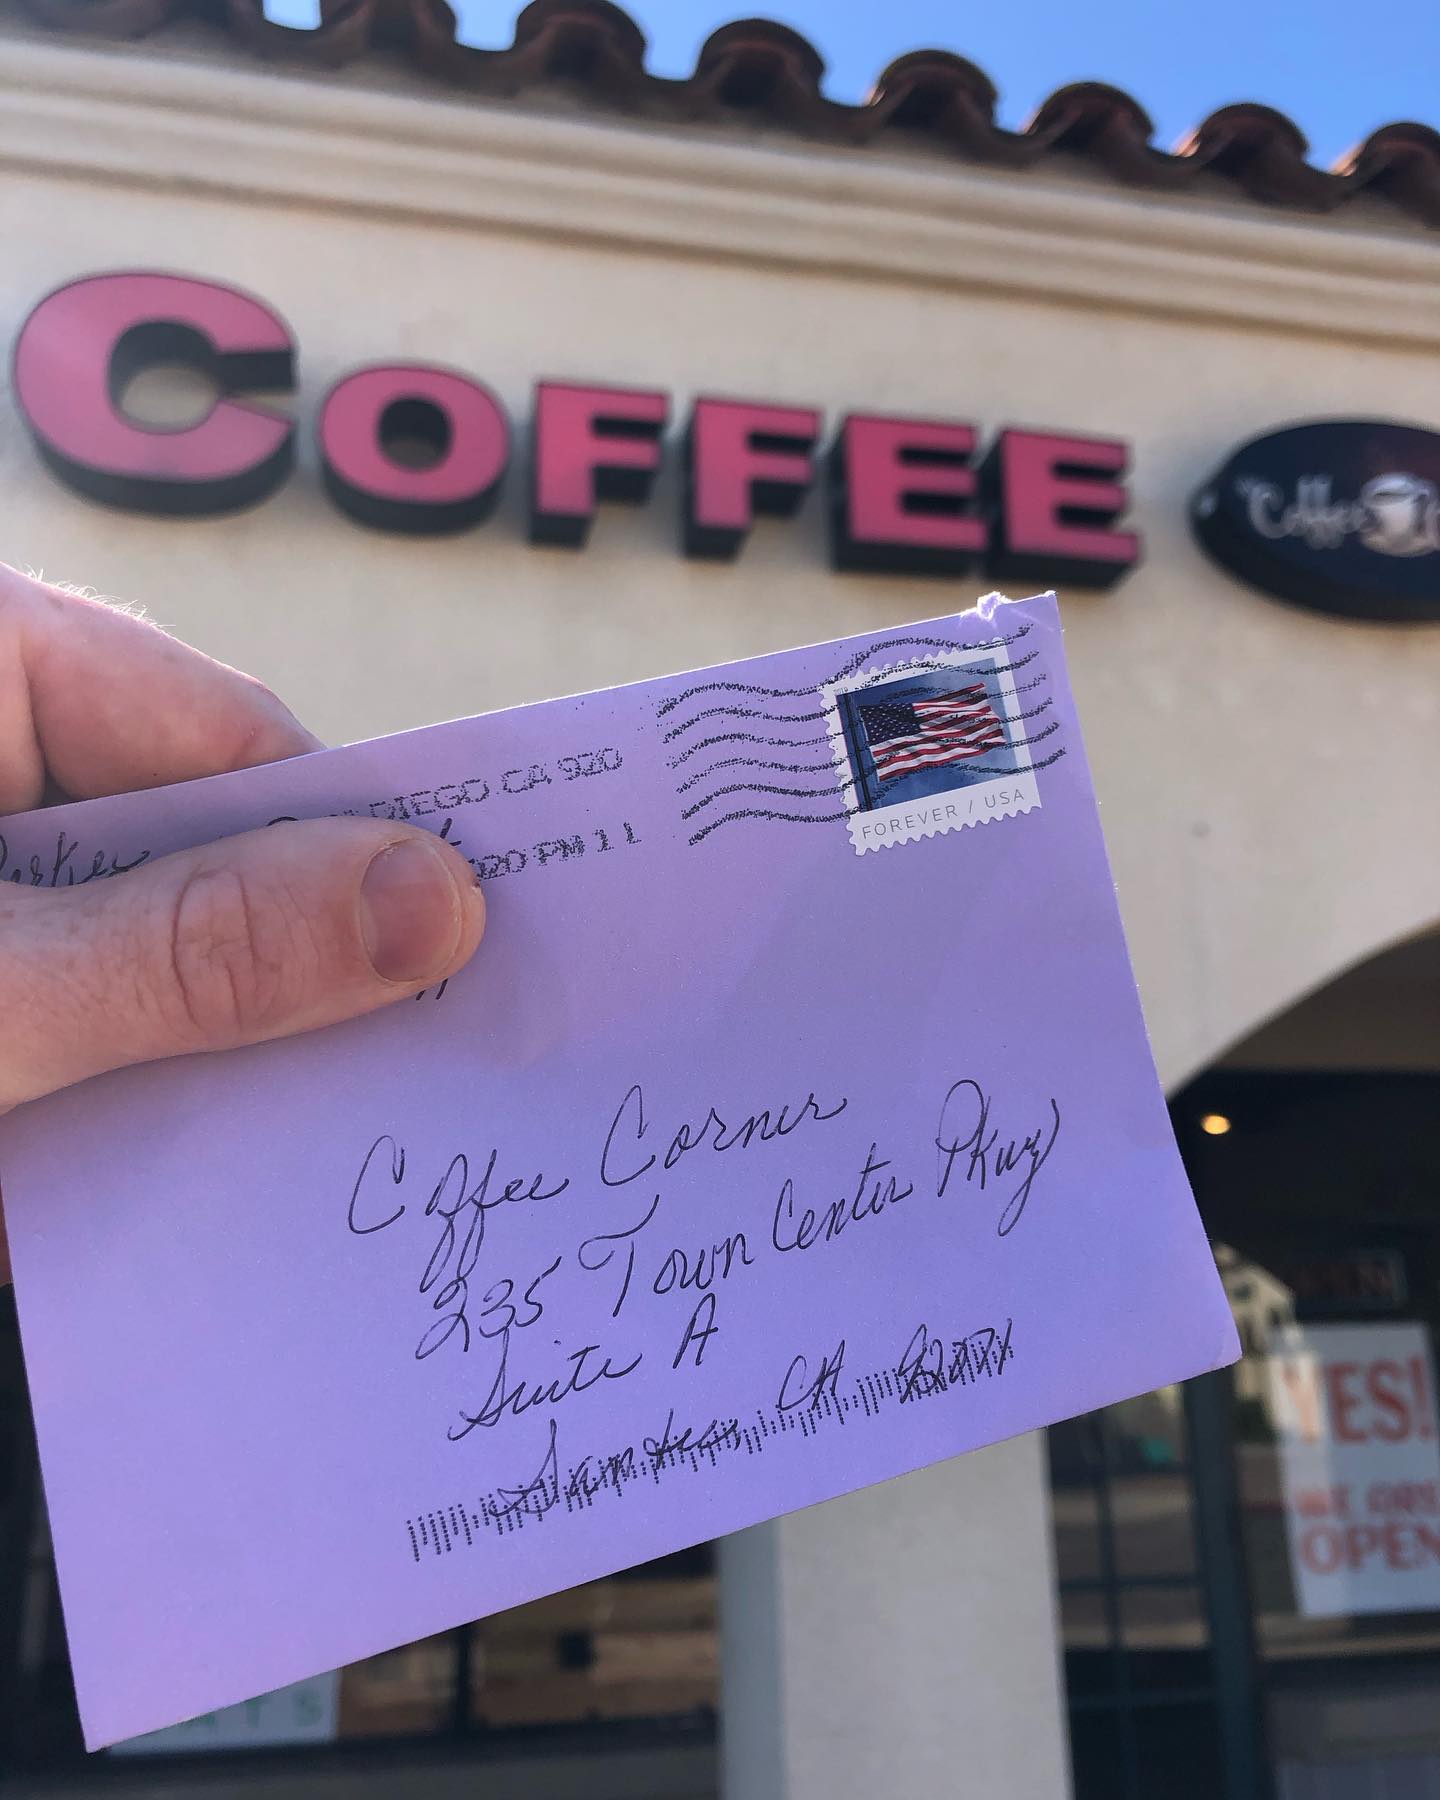 COFFEE
Coffee
DIEGO CA 920
PM 1 L
2019
FOREVER / USA
Coffee Corner
235 Town Center Pkwy
Suite A
Santee, CA 92071
YES!
WE ARE
OPEN